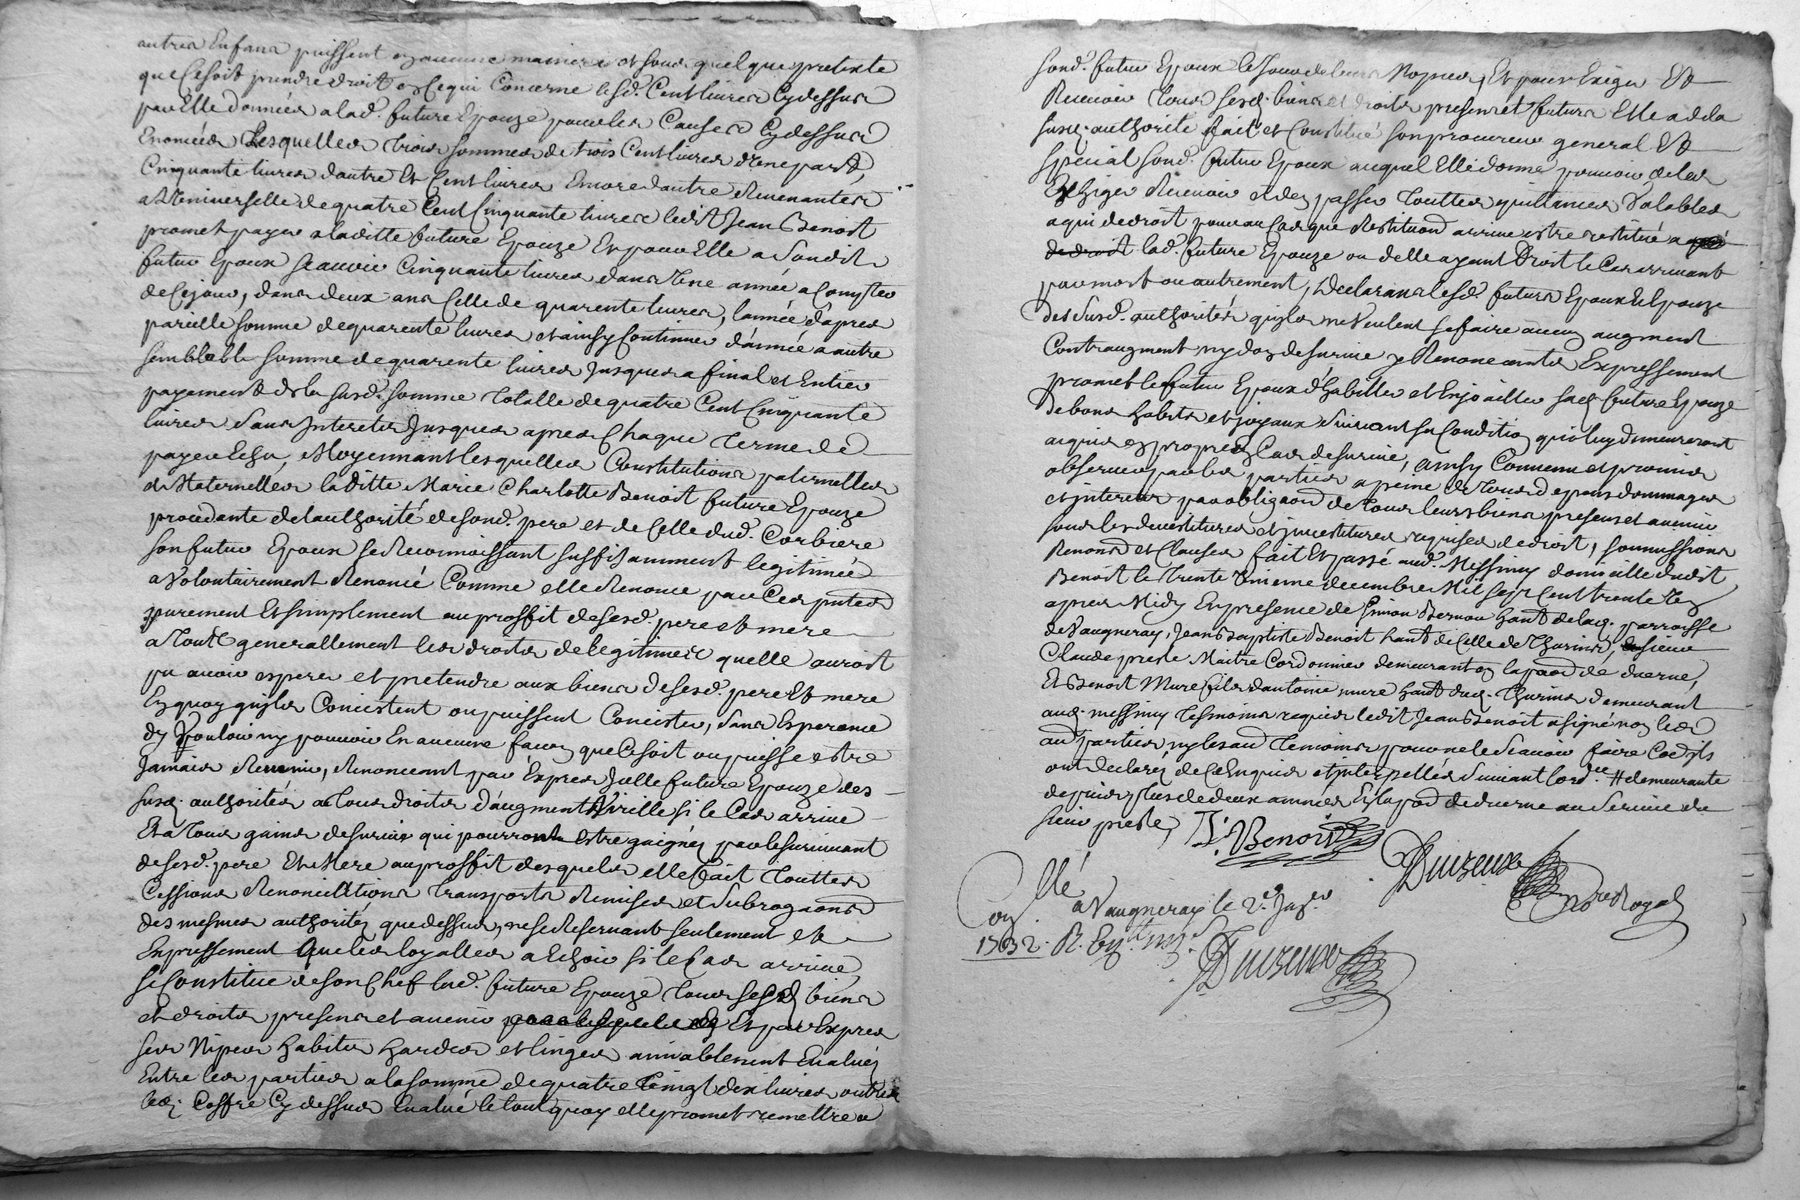 autres Enfans puissent en aucune maniere et sous quelque pretexte
que ce soit prendre droit en ce qui Concerne lesd. Cent livres Cy dessus
par Elle données a lad. future Epouze pour les Causes Cy dessus
Enoncées Lesquelles trois sommes de trois Cent livres d'Une part,
Cinquante livres dautre Et Cent livres Encore dautre Revenantes
a Universelle de quatre Cent Cinquante livres ledit Jean Benoit
promet payer a laditte future Epouze Et pour Elle a Sondit
futur Epoux scavoir Cinquante livres dans Une année a Compter
de Ce jour, dans deux ans Celle de quarente livres, lannée d'apres
pareille somme de quarente livres et ainsy Continuer d'année a autre
semblable somme de quarente livres jusques a final et Entier
payement de la susd. somme totalle de quatre Cent Cinquante
livres sans Interets jusques apres Chaque terme de
payer Echu, Moyennant lesquelles Constitutions paternelles
et Maternelles laditte Marie Charlotte Benoit future Epouze
procedante de lauthorité de sond. pere et de Celle dud. Corbiere
son futur Epoux se Reconnoissant suffisamment legitimée
a volontairement Renoncé Comme elle Renonce par Ces pntes
purement Et simplement au proffit de sesd. pere et mere
a toute generallement les droits de legitimes quelle auroit
pu avoir esperer et pretendre aux biens de sesd. pere Et mere
En quoy quils Concistent ou puissent Concister, sans Esperance
dy Vouloir ny pouvoir En aucune façon que Ce soit ou puisse estre
jamais Revenir, Renonceant par Exprès Jcelle future Epouze des
susd. authorités a tous droits d'augment Virille si le Cas arrive
Et a tous gains de survie qui pourront estre gaignés par le survivant
de sesd. pere Et Mere au proffit desquels elle fait touttes
Cessions Renonciations transports Remises et subrogaons
des mesmes authorités que dessus, ne se Reservant seulement et
Expressement que les loyalles a Echoir si le Cas arrive,
se Constitue de son Chef lad. future Epouze tous sesd. biens
et droits presens et avenir Et par Expres
ses Nipes habits hardes et linges amiablement Evalués
Entre les parties a la somme de quatre Vingt dix livres outre
led. Coffre Cy dessus Evalué le tout quoy elle promet remettre a
sond. futur Epoux le jour de leurs Nopces, Et pour Exiger Et
Recevoir tous sesd. biens et droits presens et futurs Elle a de la
susd. authorité fait et Constitué son procureur general Et
special sond. futur Epoux auquel Elle donne pouvoir de les
Exhiger Recevoir et den passer touttes quittances Valables
a qui de droit pour au Cas que Restituon arrive estre restitué a
de droit lad. future Epouze ou delle ayant Droit le Cas arrivant
par mort ou autrement, Declarans lesd. futurs Epoux Et Epouze
des susd. authorités quils ne Veulent se faire aucun augment
Contraugment ny don de survie y Renonceants Expressement
promet le futur Epoux d'habiller et Enjoailler sad. future Epouze
de bons habits et joyaux suivant sa Condition qui luy demeureront
acquis en propres En Cas de survie, ainsy Convenu et promis
observer par les parties a peine de tous depens dommages
et interets par obligaon de tous leurs biens presens et avenir
sous les devestitures et investitures requises de droit, soumissions
Renons et Clauses fait Et passé aud. Messimy domicille dudit
Benoit le trente Unieme decembre Mil sept cent trente Un
apres Midy En presence de Simon Bernou habt. delad. parroisse
de Vaugneray, Jean Baptiste Benoit habt. de Celle de Thurins, sieur
Claude preste Maitre Cordonnier demeurant en la par. de duerne,
Et Benoit Mure fils d'antoine mure habt. dud. Thurins demeurant
aud. messimy tesmoins requis ledit Jean Benoit a signé non les
au. parties ny lesd. temoins pour ne le scavoir faire Ce quils
ont declaré de Ce Enquis et interpellés suivant lord.ce # demeurante
depuis plus de deux années En la par. de duerne au service du
sieur preste,
J. Benoit
Duizeux
Nore Royal
Conllé
a Vaugneray le 2e. Janer.
1732. R.
Duizeux